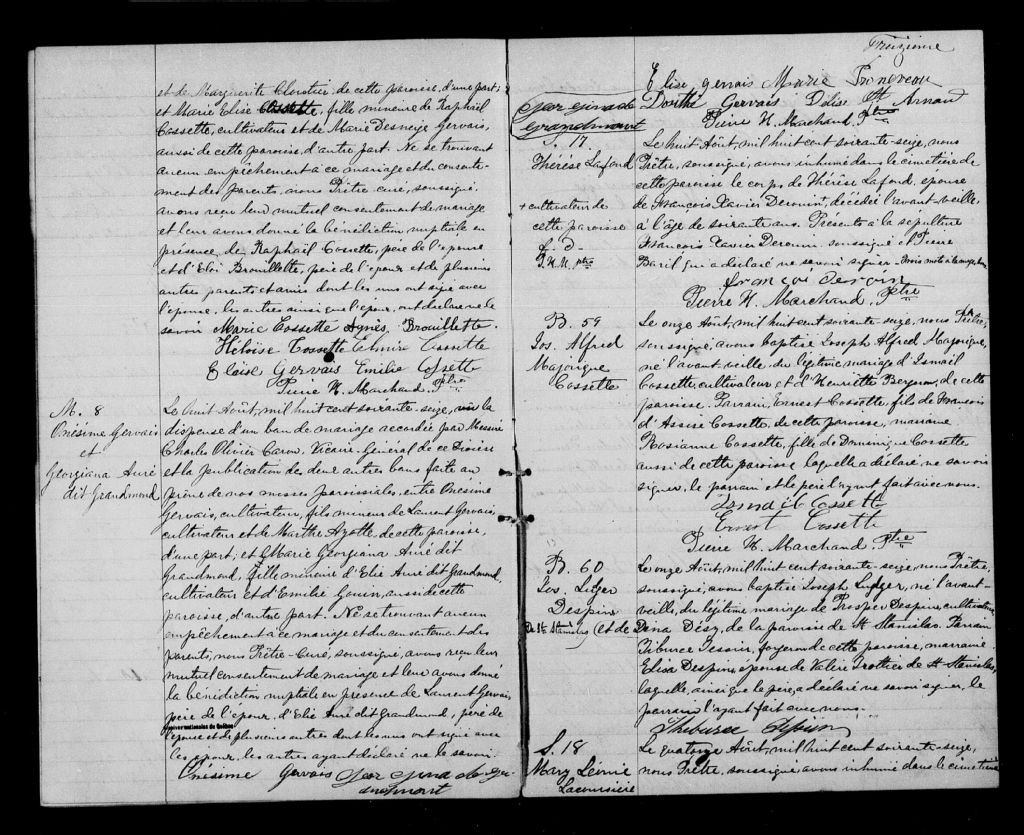 et de Marguerite Cloutier, de cette paroisse, d'une part;
et Marie Elise Cossette, fille mineure de Raphaël
Cossette, cultivateur, et de Marie Desneige Gervais,
aussi de cette paroisse, d'autre part. Ne se trouvant
aucun empêchement à ce mariage et du consente-
ment des parents, nous Prêtre curé, soussigné,
avons reçu leur mutuel consentement de mariage
et leur avons donné la bénédiction nuptiale en
présence de Raphaël Cossette, père de l'épouse
et d'Eloi Brouillette, père de l'époux et de plusieurs
autres parents et amis dont les uns ont signé avec
l'épouse, les autres ainsi que l'époux, ont déclaré ne le
savoir Marie Cossette Agnès Brouillette.
Héloïse Cossette Elmire Cossette
Eloise Gervais Emilie Cossette
Pierre H. Marchand Ptre
M. 8
Onésime Gervais
et
Georgiana Auré
dit Grandmond
Le huit Août, mil huit cent soixante-seize, vu la
dispense d'un ban de mariage accordée par Messire
Charles Olivier Caron, Vicaire-Général de ce Diocèse
et la publication de deux autres bans faite au
prône de nos messes paroissiales, entre Onésime
Gervais, cultivateur, fils mineur de Laurent Gervais,
cultivateur et de Marthe Ayotte, de cette paroisse,
d'une part; et Marie Georgiana Auré dit
Grandmond, fille mineure d'Elie Auré dit Grandmond,
cultivateur et d'Emilie Gouin, aussi de cette
paroisse, d'autre part. Ne se trouvant aucun
empêchement à ce mariage et du consentement des
parents, nous Prêtre-Curé, soussigné, avons reçu leur
mutuel consentement de mariage et leur avons donné
la bénédiction nuptiale en présence de Laurent Gervais,
père de l'époux, d'Elie Auré dit Grandmond, père de
nationales du Québec
l'épouse et de plusieurs autres dont les uns ont signé avec
les époux, les autres ayant déclaré ne le savoir.
Onésime Gervais
Treizième
Elise Gervais Marie
Gervais Délise St Arnaud
Pierre H. Marchand, Ptre
S. 17.
Thérèse Lafond
+ cultivateur de
cette paroisse
P.H.M. ptre
Le huit Août, mil huit cent soixante-seize, nous
Prêtre, soussigné, avons inhumé dans le cimetière de
cette paroisse le corps de Thérèse Lafond, épouse
de François Xavier Derouin, décédée l'avant-veille
à l'âge de soixante ans. Présents à la sépulture
François Xavier Derouin soussigné et Pierre
Baril qui a déclaré ne savoir signer.
Pierre H. Marchand, Ptre
B. 59
Jos. Alfred
Majorique
Cossette
Le onze Août, mil huit cent soixante-seize, nous Prêtre,
soussigné, avons baptisé Joseph Alfred Majorique,
né l'avant-veille du légitime mariage d'Ismaïl
Cossette, cultivateur et d'Henriette Bergeron, de cette
paroisse. Parrain, Ernest Cossette, fils de François
d'Assise Cossette, de cette paroisse, marraine
Rosianne Cossette, fille de Dominique Cossette
aussi de cette paroisse laquelle a déclaré ne savoir
signer, le parrain et le père l'ayant fait avec nous.
Ismaïl Cossette
Ernest Cossette
Pierre H. Marchand Ptre
B. 60
Jos. Ludger
Despins
De St Stanislas
Le onze Août, mil huit cent soixante-seize, nous Prêtre,
soussigné, avons baptisé Joseph Ludger, né l'avant-
veille, du légitime mariage de Prosper Despins, cultivateur
(et de Dina Désy, de la paroisse de St Stanislas. Parrain
Tiburce Tessier, forgeron de cette paroisse, marraine
Elisa Despins, épouse de Valère Trottier de St Stanislas,
laquelle, ainsi que le père, a déclaré ne savoir signer, le
parrain l'ayant fait avec nous.
S. 18
Mary Léonie
Lacoursière
Le quatorze Août, mil huit cent soixante-seize,
nous Prêtre, soussigné, avons inhumé dans le cimetière